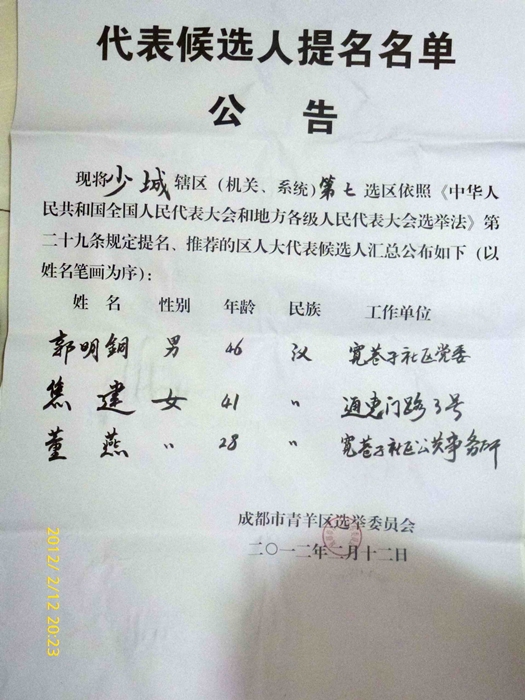 代表候选人提名名单
公 告
现将少城辖区（机关、系统）第七选区依照《中华人
民共和国全国人民代表大会和地方各级人民代表大会选举法》第
二十九条规定提名、推荐的区人大代表候选人汇总公布如下（以
姓名笔画为序）：
姓 名 性别 年龄 民族 工作单位
郭明铜 男 46 汉 宽巷子社区党委
焦建 女 41 〃 通惠门路3号
董燕 〃 28 〃 宽巷子社区公共事务所
成都市青羊区选举委员会
二〇一二年二月十二日
2012/ 2/12 20:23